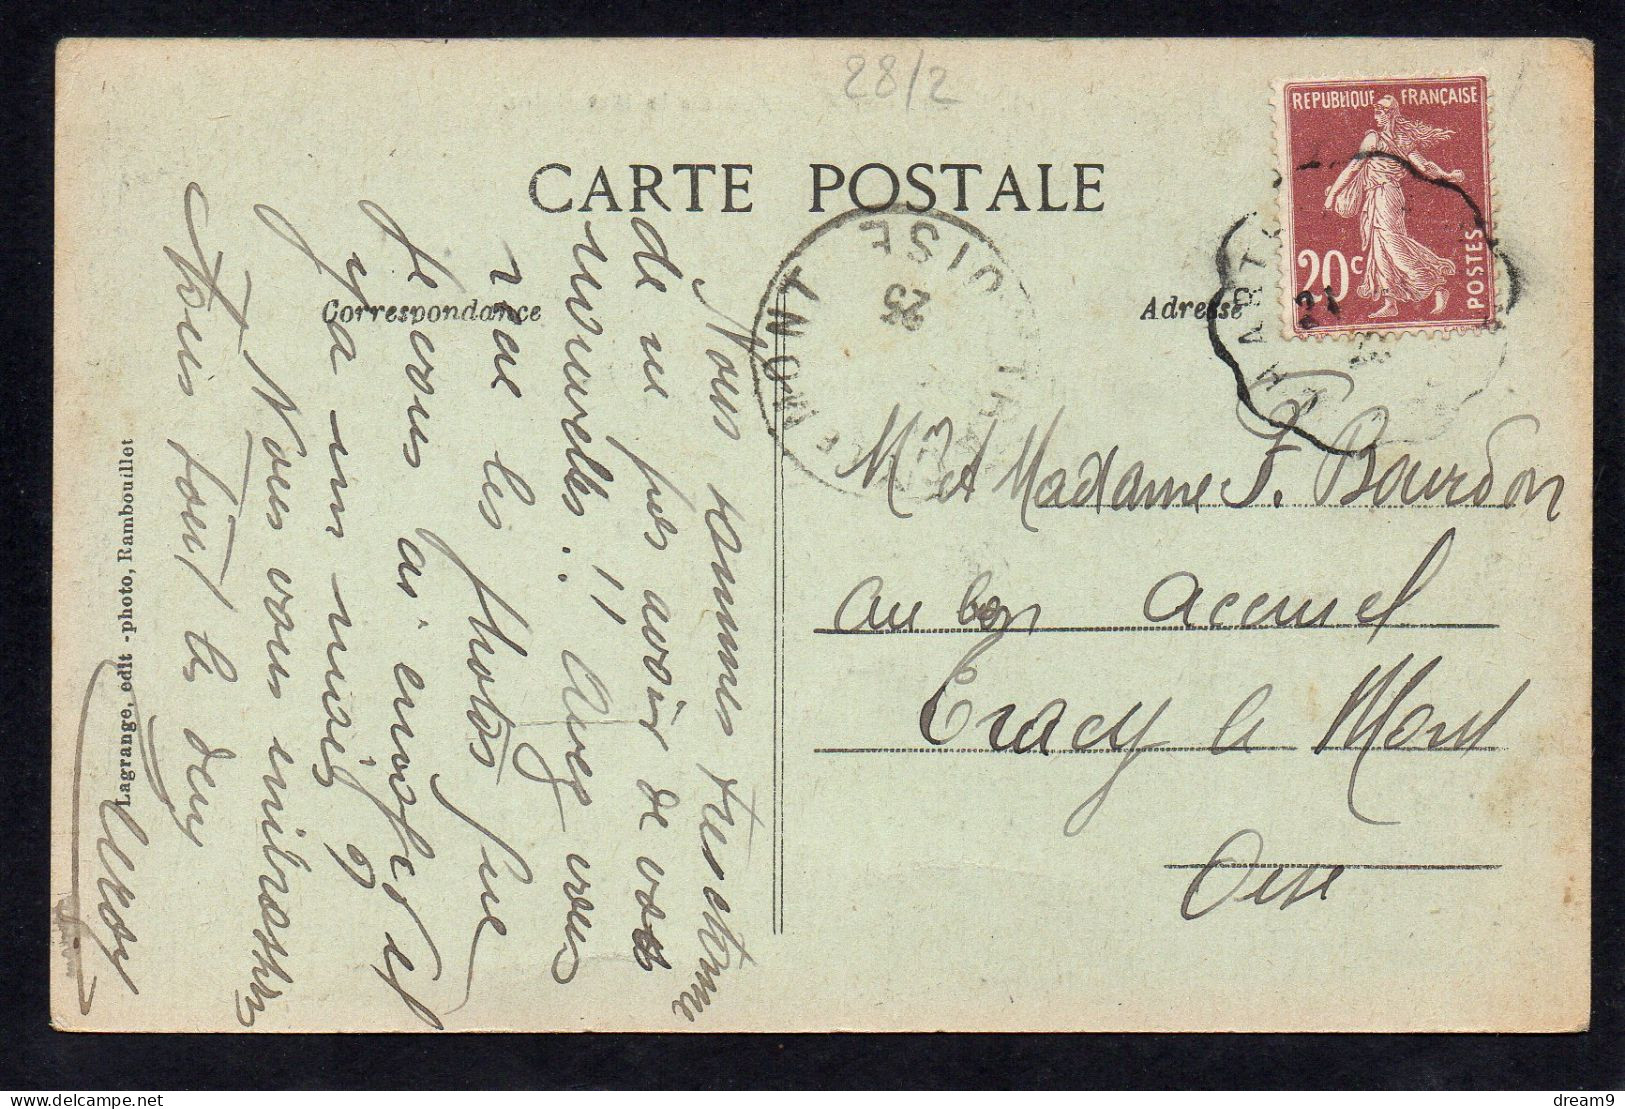 28/2
CARTE POSTALE
REPUBLIQUE FRANÇAISE
20c
POSTES
Correspondance
Adresse
Nous sommes très étonné
de ne pas avoir de vos
nouvelles. !! Avez vous
reçu les photos que
je vous ai envoyé il
y a un mois ?
Nous vous embrassons
tous tout les deux
Lagrange, édit -photo, Rambouillet
OISE
25
MONT
CHART
21
M et Madame F. Bourdon
au bon accueil
Tracy le Mont
Oise